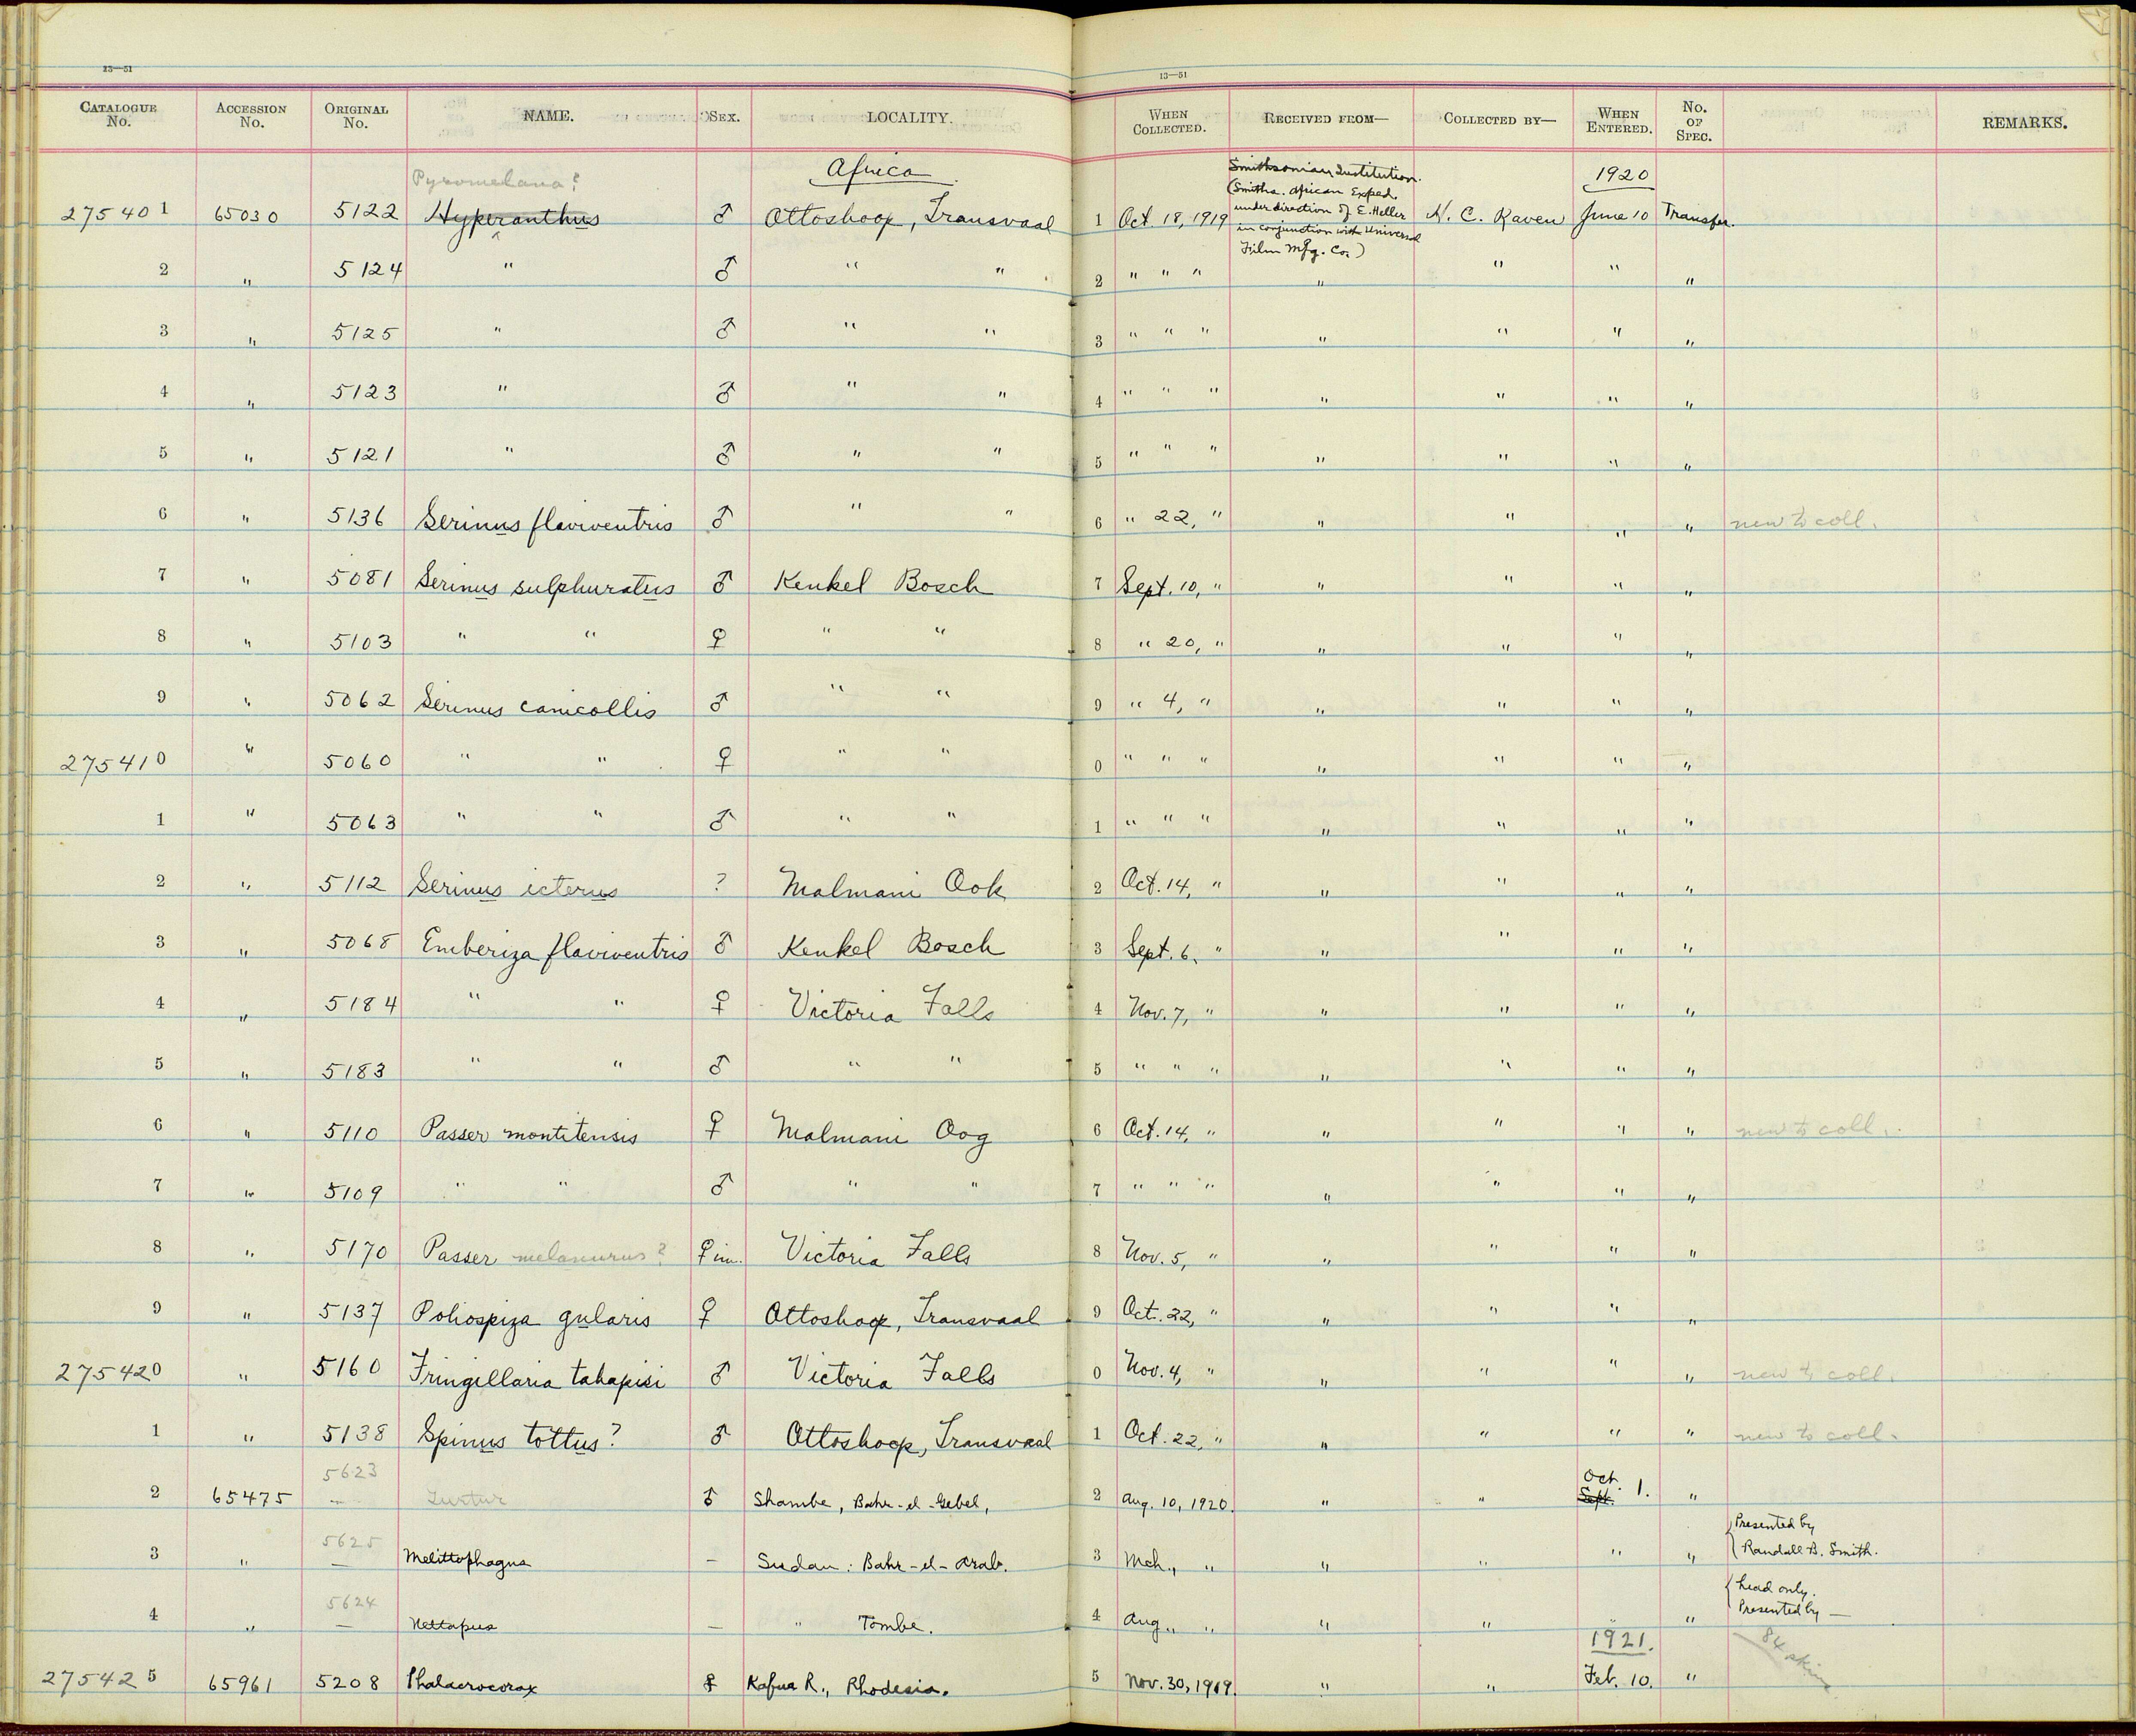 13—51 13—51
CATALOGUE No. ACCESSION No. ORIGINAL No. NAME. SEX. LOCALITY. WHEN COLLECTED. RECEIVED FROM— COLLECTED BY— WHEN ENTERED. No. OF SPEC. REMARKS.
Pyromelana? Africa Smithsonian Institution. 1920
(Smiths. African Exped.
275401 65030 5122 Hyperanthus ♂ Ottoshoop, Transvaal 1 Oct. 18, 1919 under direction of E. Heller H. C. Raven June 10 Transfer.
in conjunction with Universal
Film Mfg. Co.)
2 " 5124 " ♂ " " 2 " " " " " " "
3 " 5125 " ♂ " " 3 " " " " " " "
4 " 5123 " ♂ " " 4 " " " " " " "
5 " 5121 " ♂ " " 5 " " " " " " "
6 " 5136 Serinus flaviventris ♂ " " 6 " 22, " " " " " new to coll.
7 " 5081 Serinus sulphuratus ♂ Kenkel Bosch 7 Sept. 10, " " " " "
8 " 5103 " " ♀ " " 8 " 20, " " " " "
9 " 5062 Serinus canicollis ♂ " " 9 " 4, " " " " "
275410 " 5060 " " ♀ " " 0 " " " " " " "
1 " 5063 " " ♂ " " 1 " " " " " " "
2 " 5112 Serinus icterus ? Malmani Ook 2 Oct. 14, " " " " "
3 " 5068 Emberiza flaviventris ♂ Kenkel Bosch 3 Sept. 6, " " " " "
4 " 5184 " " ♀ Victoria Falls 4 Nov. 7, " " " " "
5 " 5183 " " ♂ " " 5 " " " " " " "
6 " 5110 Passer montitensis ♀ Malmani Oog 6 Oct. 14, " " " " " new to coll.
7 " 5109 " " ♂ " " 7 " " " " " " "
8 " 5170 Passer melanurus? ♀ im. Victoria Falls 8 Nov. 5, " " " " "
9 " 5137 Poliospiza gularis ♀ Ottoshoop, Transvaal 9 Oct. 22, " " " " "
275420 " 5160 Fringillaria tahapisi ♂ Victoria Falls 0 Nov. 4, " " " " " new to coll.
1 " 5138 Spinus tottus? ♂ Ottoshoop, Transvaal 1 Oct. 22, " " " " " new to coll.
5623 Oct.
2 65475 — Turtur ♂ Shambe, Bahr-el-Gebel, 2 Aug. 10, 1920. " " Sept. 1. "
5625 Presented by
3 " — Melittophagus — Sudan: Bahr-el-Arab. 3 Mch., " " " " " Randall B. Smith.
5624 head only.
4 " — Nettapus — " Tombe. 4 Aug., " " " " " Presented by —
1921. 84 skin
275425 65961 5208 Phalacrocorax ♀ Kafua R., Rhodesia. 5 Nov. 30, 1919. " " Feb. 10. "